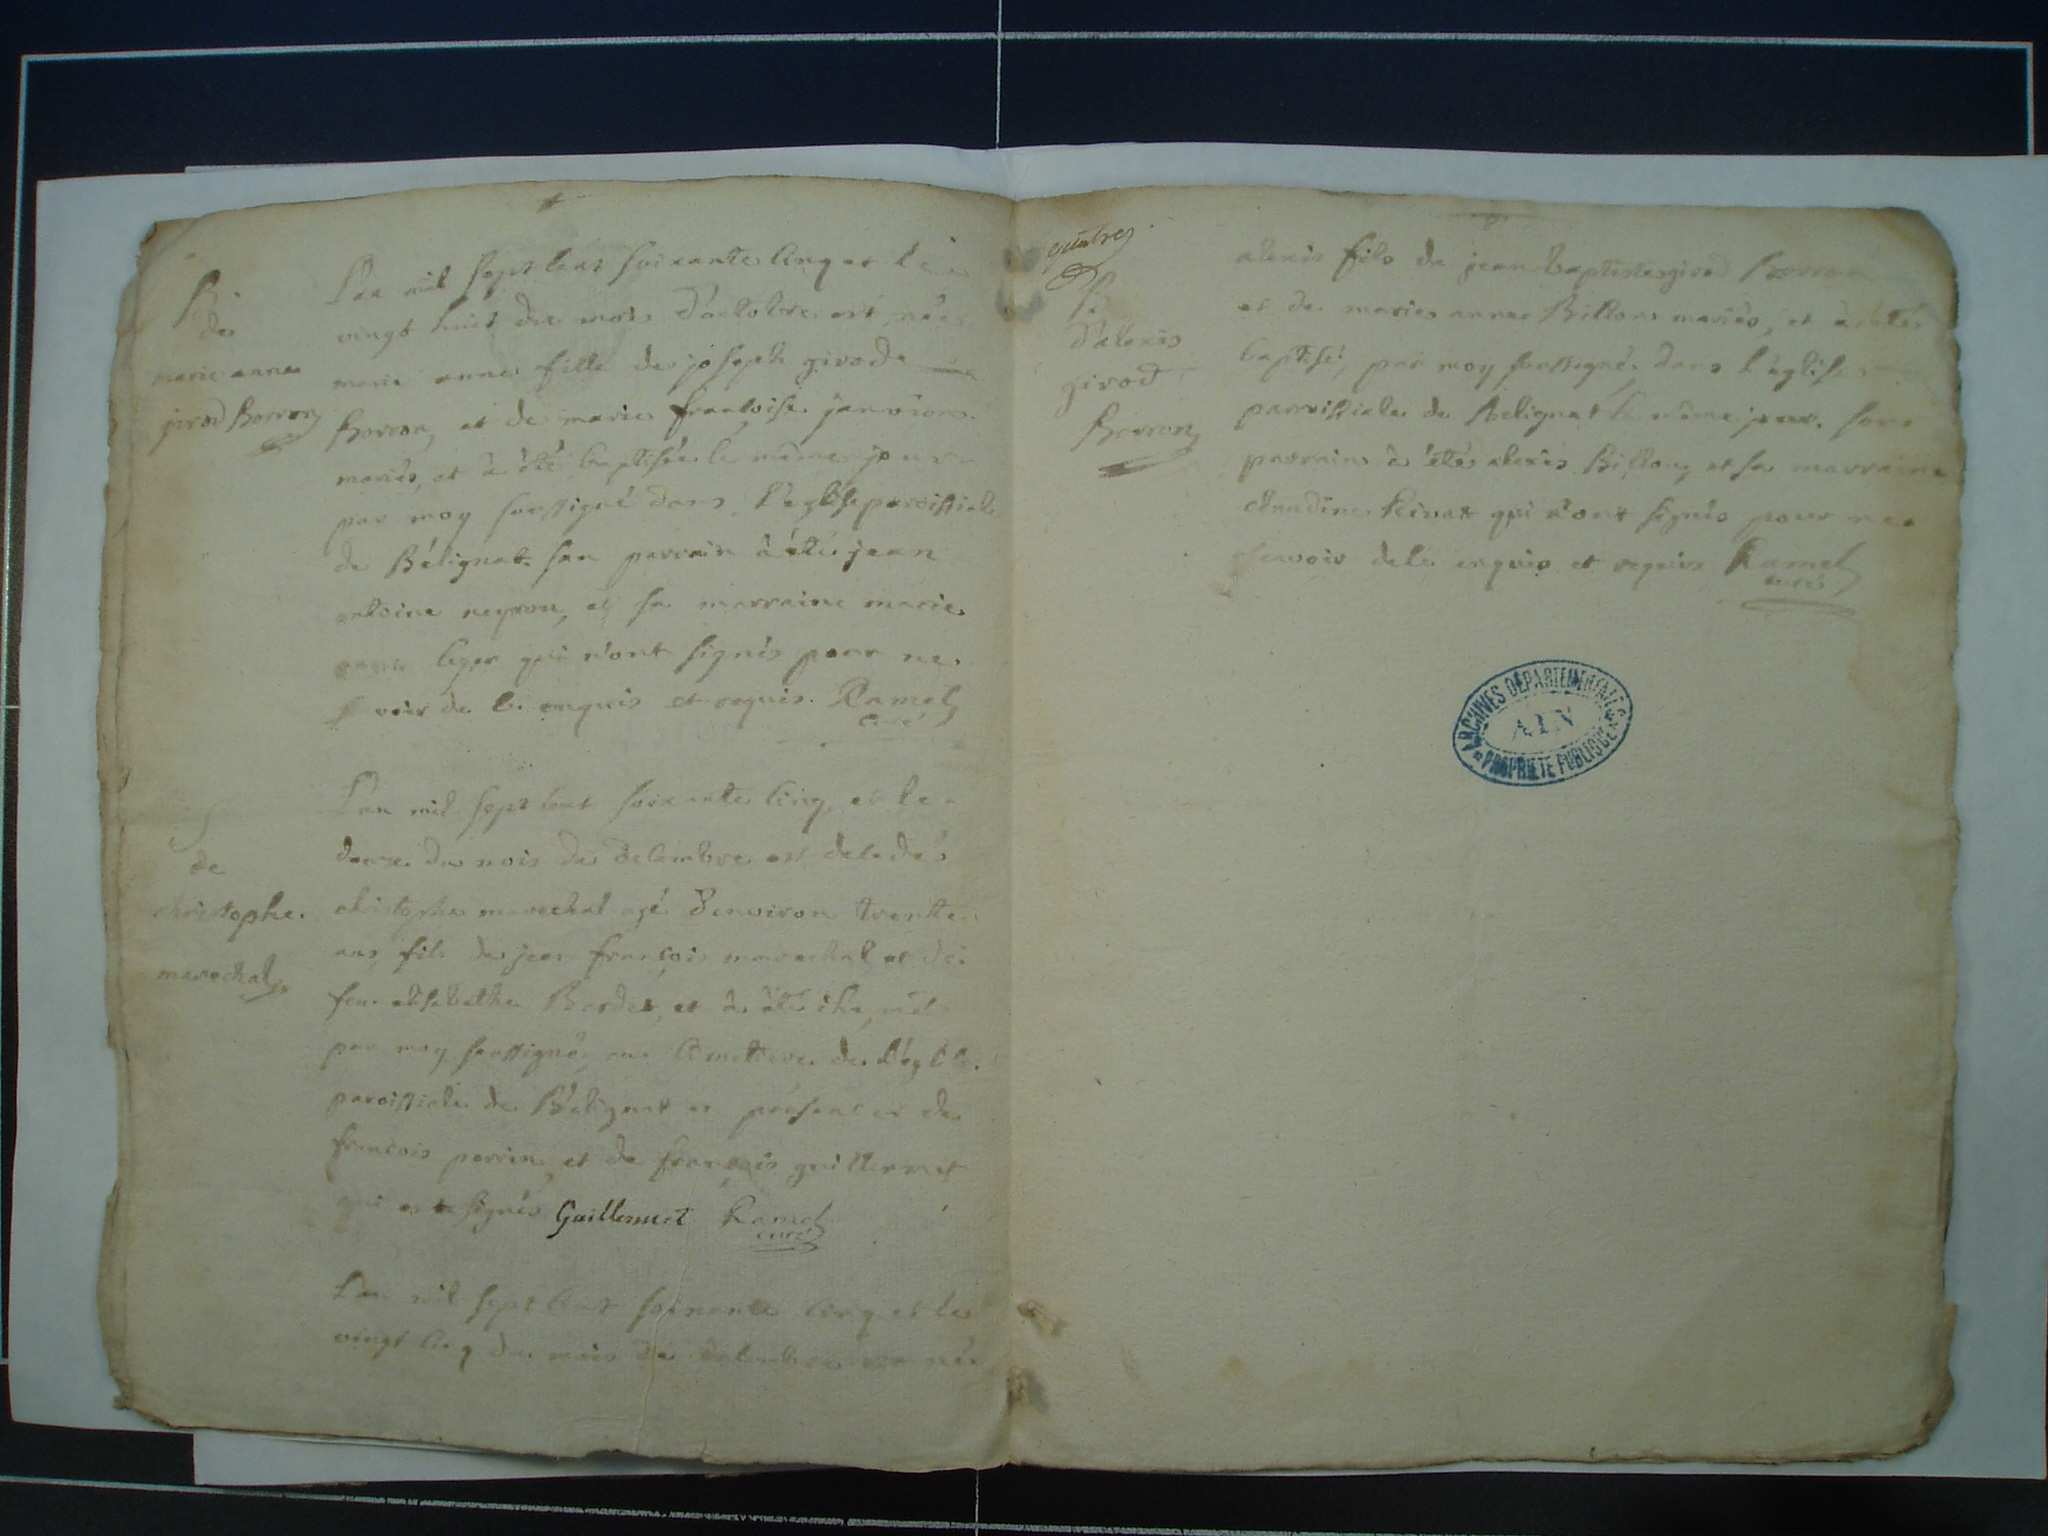 B
de
marie anne
girod Borron
L'an mil sept cent soixante cinq et le
vingt huit du mois d'octobre est née
marie anne fille de joseph girod
Borron, et de marie françoise janvion
mariés, et à été baptisée le même jour
par moy soussigné dans l'eglise paroissiale
de Bélignat. son parrain à été jean
antoine neyron, et sa marraine marie
leger qui n'ont signés pour ne
savoir de ce enquis et requis. Ramel
curé
S
de
christophe
marechal
L'an mil sept cent soixante cinq, et le
douze du mois de decembre est decedés
christophe marechal agé d'environ trente
ans, fils de jean françois marechal et de
feu elisabethe Bordet, et à été inhumé
par moy soussigné, au cimetiere de l'eglise
paroissiale de Bélignat en présence de
françois perrin, et de françois guillermet
qui a signés Guillermet Ramel
curé
L'an mil sept cent soixante cinq et le
vingt cinq du mois de decembre est né
quatre
B
d'alexis
girod
Borron
alexis fils de jean baptiste girod Borron
et de marie anne Billion mariés, et à été
baptisé, par moy soussigné, dans l'église
parroissiale de Belignat le même jour. son
parrain à étés alexis Billion, et sa marraine
claudine qui n'ont signés pour ne
scavoir dele enquis et requis Ramel
curé
ARCHIVES DÉPARTEMENTALES
AIN
PROPRIÉTÉ PUBLIQUE